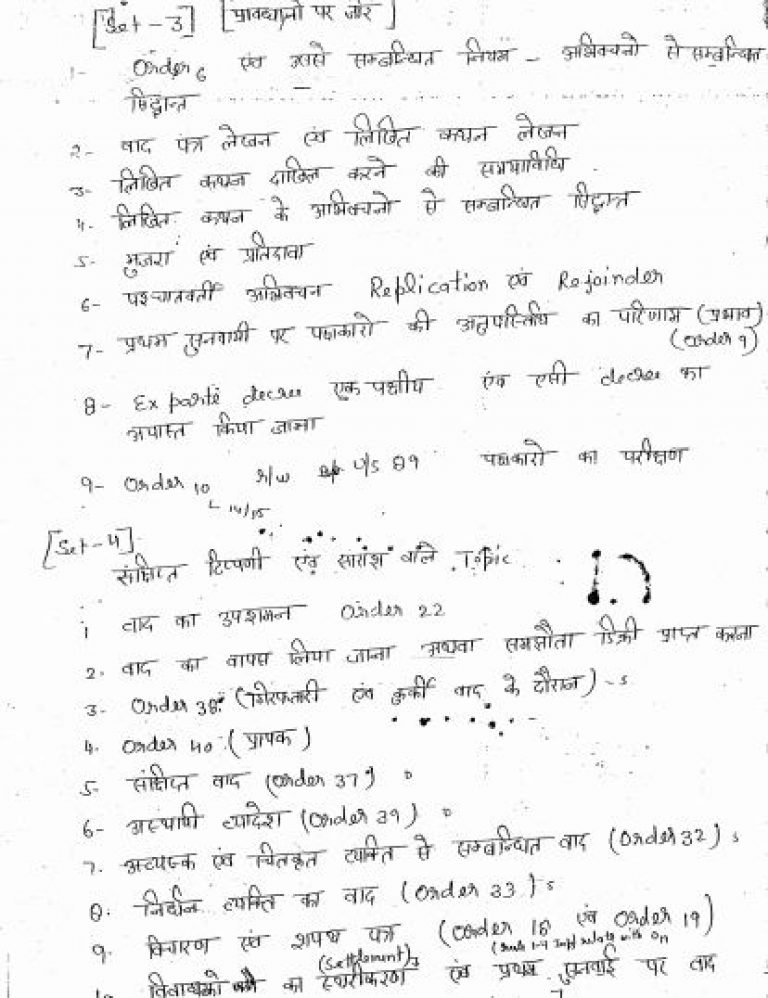 [Set-3] [प्रावधानो पर जोर]
1- Order 6 एवं उससे सम्बन्धित नियम - अभिवचनो से सम्बन्धित
सिद्धान्त
2- वाद पत्र लेखन एवं लिखित कथन लेखन
3- लिखित कथन दाखिल करने की समयाविधि
4. लिखित कथन के अभिवचनो से सम्बन्धित सिद्धान्त
5- मुजरा एवं प्रतिदावा
6- पश्चातवर्ती अभिवचन Replication एवं Rejoinder
7- प्रथम सुनवायी पर पक्षकारो की अनुपस्तिथि का परिणाम (प्रभाव)
(Order 9)
8- Ex parté decree एक पक्षीय एंव एसी decree का
अपास्त किया जाना
9- Order 10 r/w U/s 89 पक्षकारो का परीक्षण
14/15
[Set-4]
संक्षिप्त टिप्पणी एंव सारांश वाले Topic
1 वाद का उपशमन Order 22
2. वाद का वापस लिया जाना अथवा समझौता डिक्री प्राप्त करना
3- Order 38: (गिरफ्तारी एंव कुर्की वाद के दौरान) -s
4. Order 40 (प्रापक)
5- संक्षिप्त वाद (Order 37)
6- अस्थायी व्यादेश (Order 39)
7. अवयस्क एंव चितकृत व्यक्ति से सम्बन्धित वाद (Order 32) s
8. निर्धन व्यक्ति का वाद (Order 33) s
9. विचारण एंव शपथ पत्र (Order 18 एंव Order 19)
(Settlement) (rule 1-4 Imp relate with
विवाधको का स्थरीकरण एंव प्रथम सुनवाई पर वाद